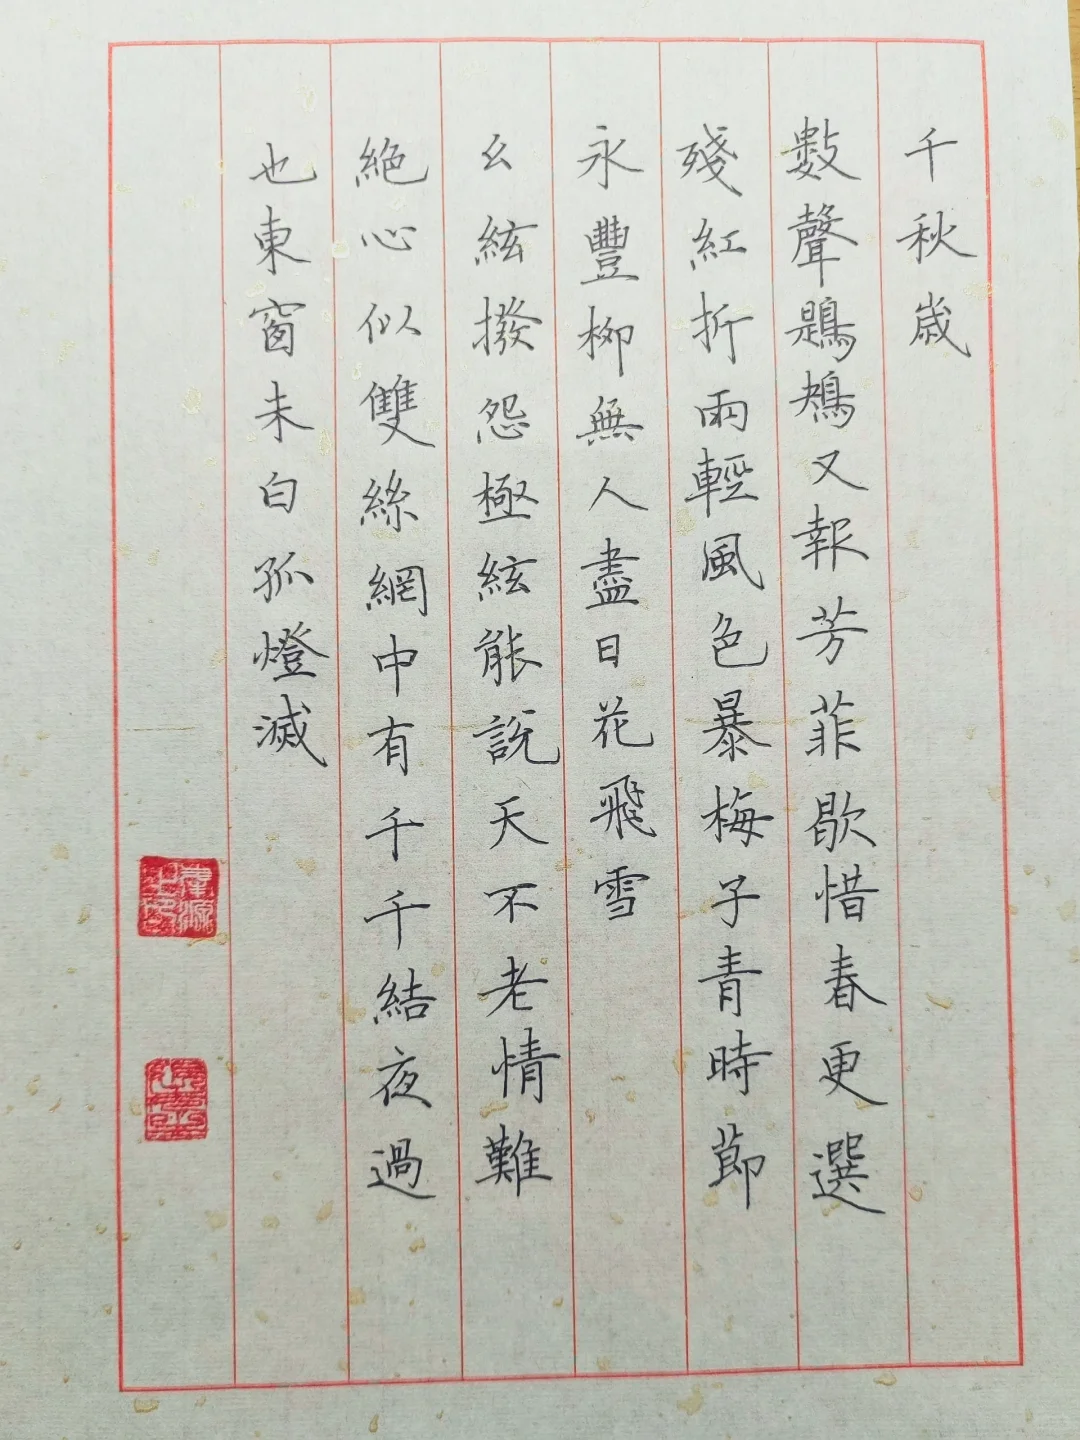 千秋歲
數聲鶗鴂又報芳菲歇惜春更選
殘紅折雨輕風色暴梅子青時節
永豐柳無人盡日花飛雪
幺絃撥怨極絃能說天不老情難
絕心似雙絲網中有千千結夜過
也東窗未白孤燈滅